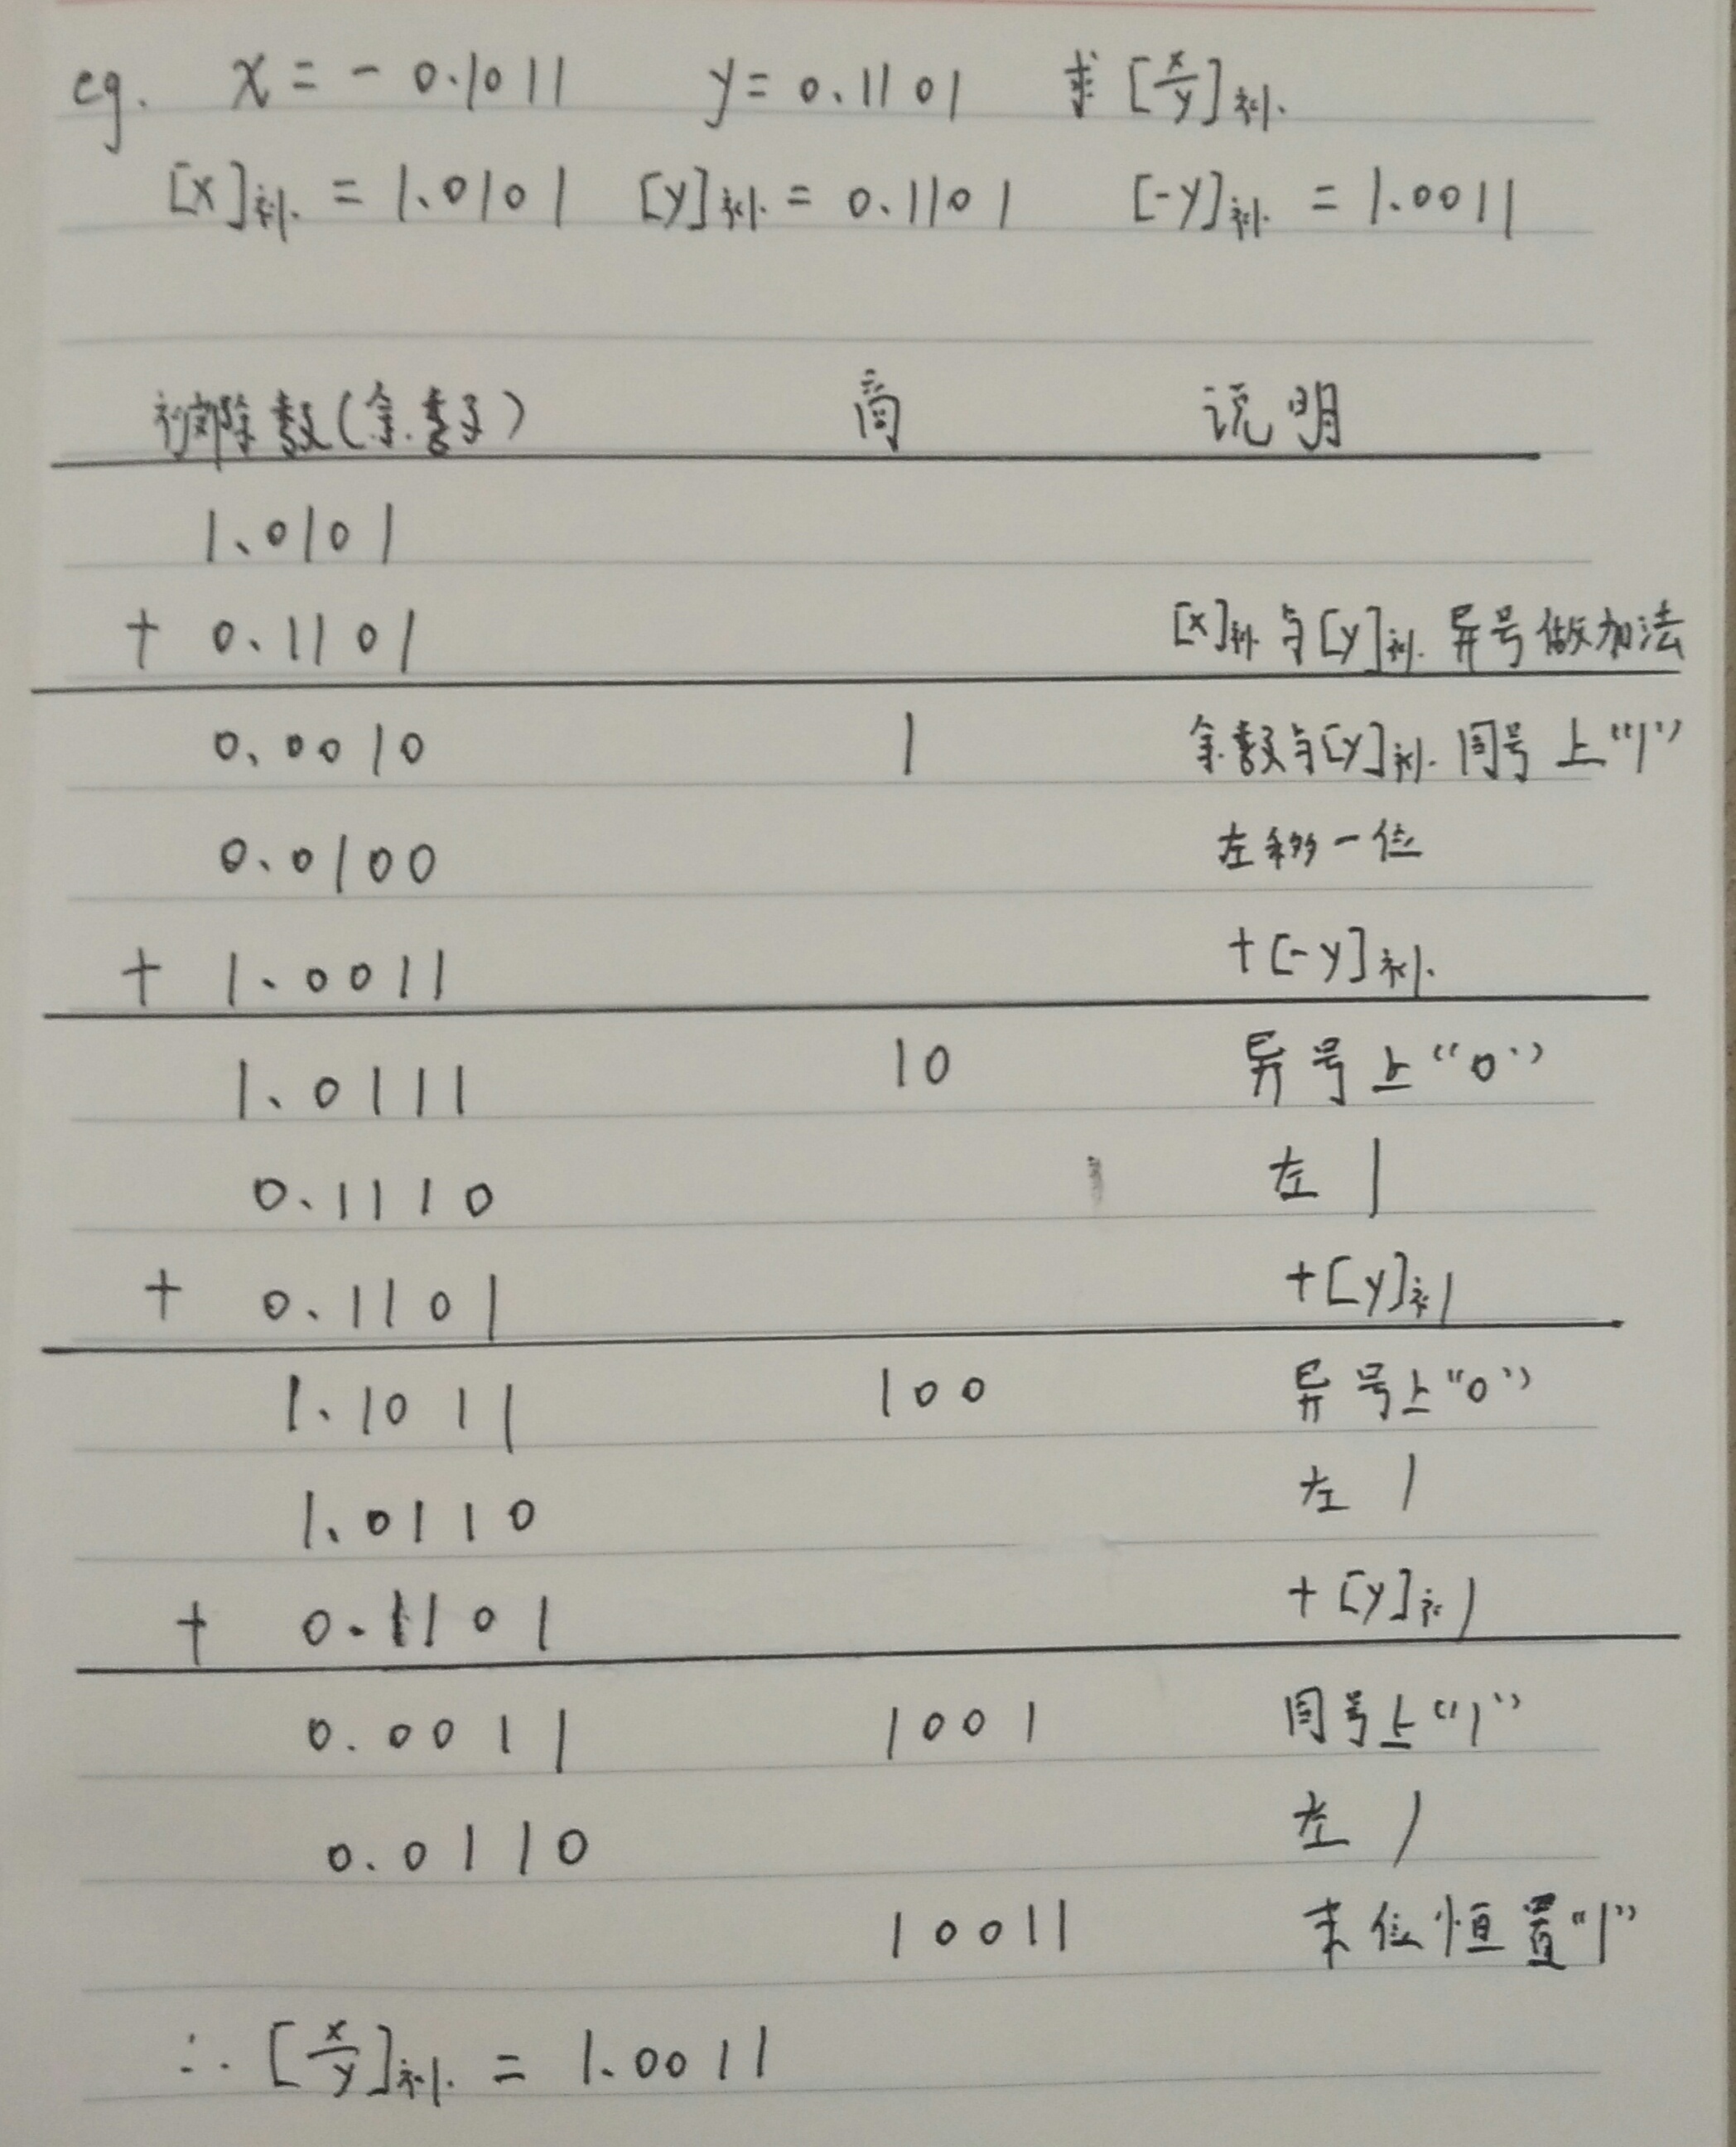 eg. x = - 0.1011 y = 0.1101 求 [x/y]补.
[x]补. = 1.0101 [y]补. = 0.1101 [-y]补. = 1.0011
被除数(余数) 商 说明
1.0101
+ 0.1101 [x]补. 与[y]补. 异号做加法
0.0010 1 余数与[y]补. 同号上“1”
0.0100 左移一位
+ 1.0011 +[-y]补.
1.0111 10 异号上“0”
0.1110 左1
+ 0.1101 +[y]补
1.1011 100 异号上“0”
1.0110 左1
+ 0.1101 +[y]补
0.0011 1001 同号上“1”
0.0110 左1
10011 末位恒置“1”
∴ [x/y]补. = 1.0011